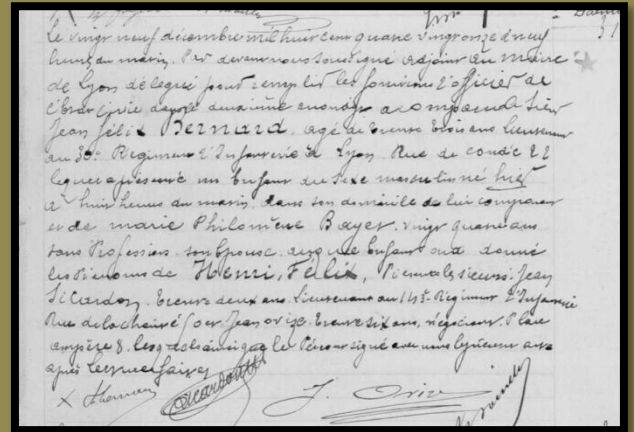 Le vingt neuf décembre mil huit cent quatre vingt onze à neuf
heures du matin. Par devant nous soussigné adjoint au maire
de Lyon délégué pour remplir les fonctions d'officier de
l'État civil dans le deuxième arrondt a comparu le sieur
Jean félix Bernard, agé de trente trois ans, lieutenant
au 30e Régiment d'Infanterie à Lyon, Rue de condé 22
lequel a présenté un Enfant du sexe masculin né hier
à huit heures du matin, dans son domicile de lui comparant
et de marie Philomène Bayet, vingt quatre ans
sans Profession, son Epouse, auquel Enfant on a donné
les Prénoms de Henri, Felix, Présents les sieurs Jean
Sicardon, trente deux ans, Lieutenant au 143e Régiment d'Infanterie
Rue de la charité et Jean orize, trente six ans, négociant, Place
ampère 8, lesquels ainsi que le Père ont signé avec nous
après lecture faite
J. Orize